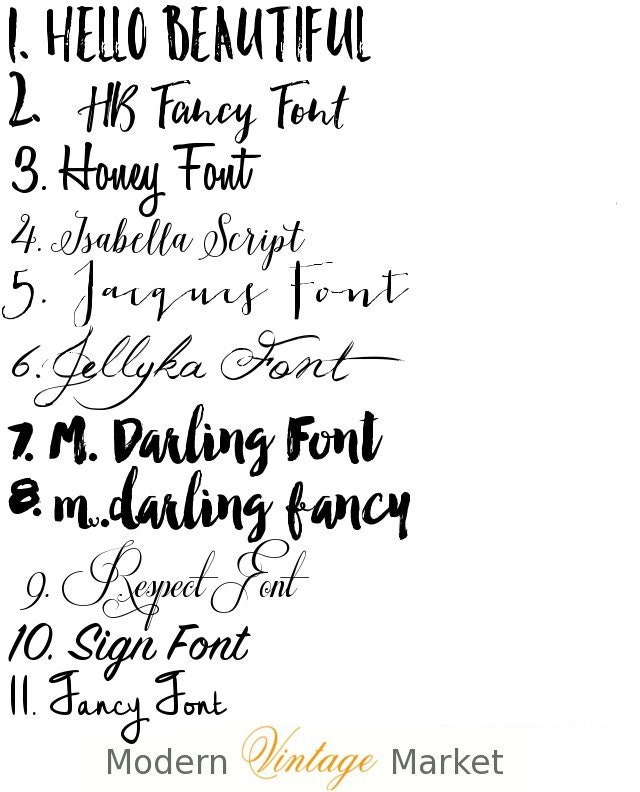 1. HELLO BEAUTIFUL
2. HB Fancy Font
3. Honey Font
4. Isabella Script
5. Jacques Font
6. Jellyka Font
7. M. Darling Font
8. m.darling fancy
9. Respect Font
10. Sign Font
11. Fancy Font
Modern Vintage Market